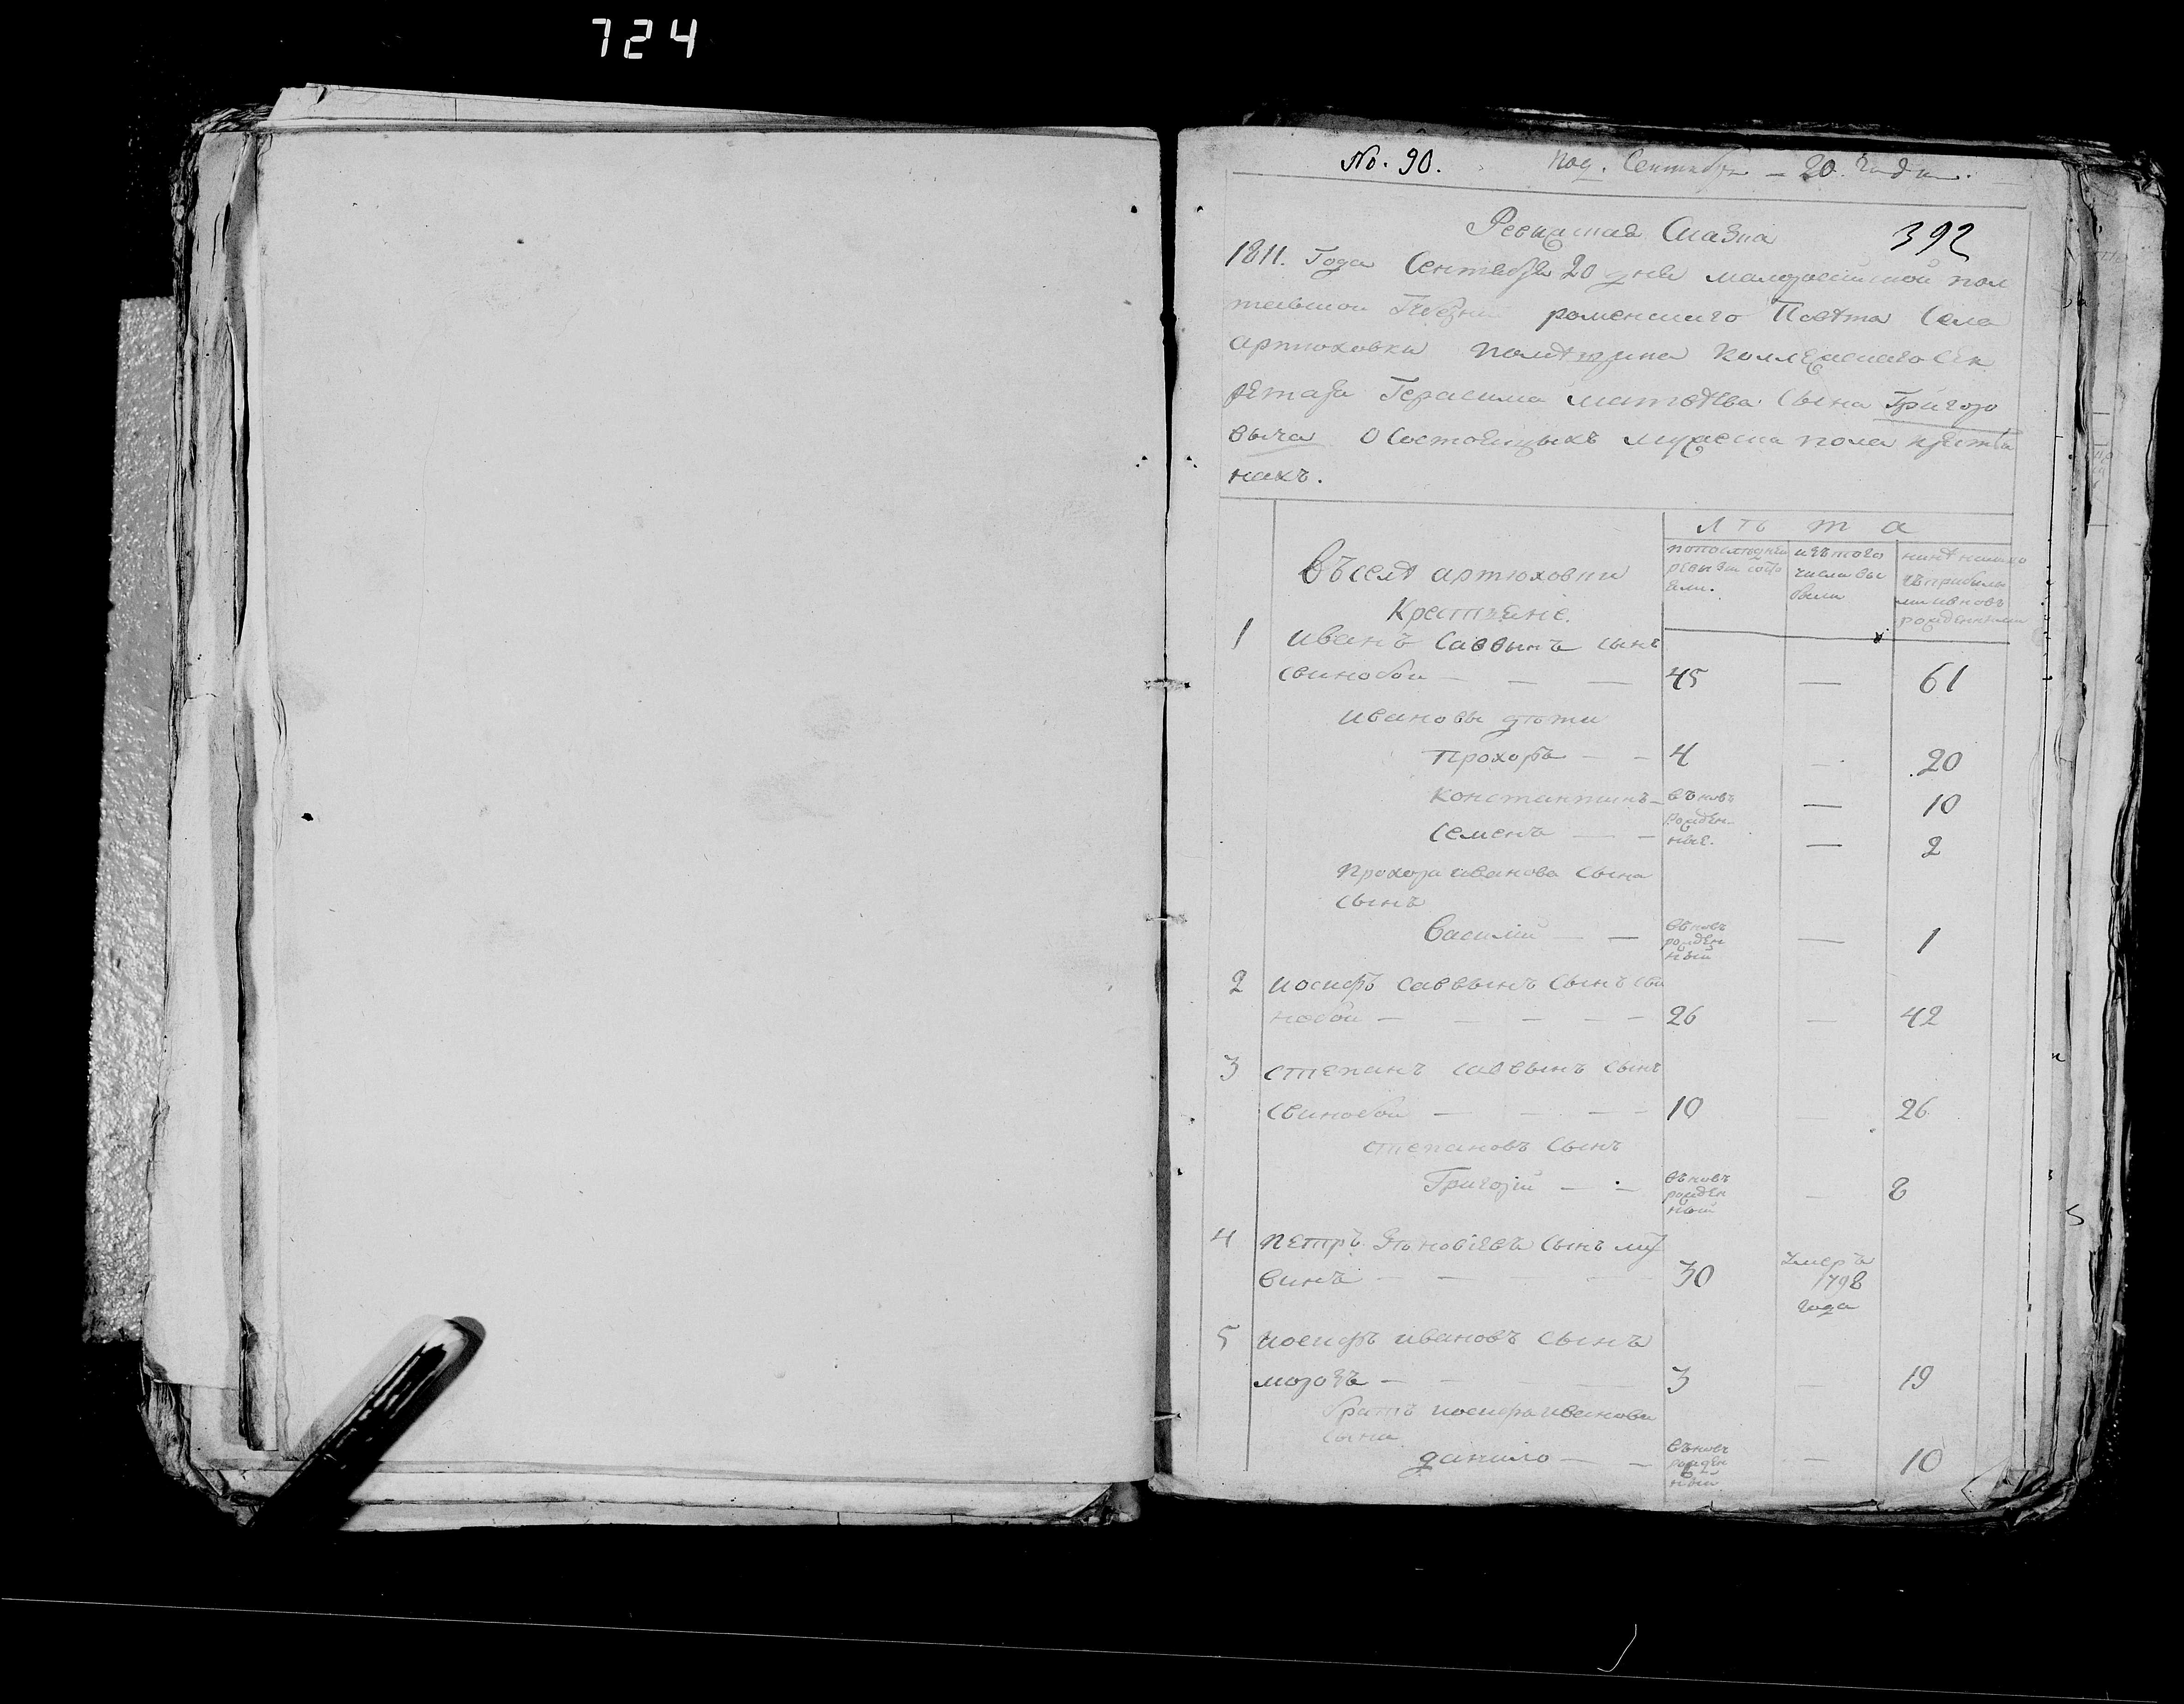 724
No. 90. под. Сентября 20. 
392
Ревизская Сказка
1811. Года Сентября 20 дня малороссийской пол
тавской Губерніи роменского Повѣта Села
Артюховки помѣщика Коллежского Сек
ретаря Герасима Матвѣева Сына Григоро
выча о Состоящыхъ мужеска пола крестья
нахъ.
лѣта
попослѣдней ревизіи состо яли.
изътого числа вы были
нынѣ налицо съ прибылы ми ивновь рожденными
Въселѣ артюховки
Крестьяне.
1 иванъ Саввынъ сынъ
свинобой — — — 45 — 61
ивановы дѣти
Прохоръ — — 4 — 20
Константинъ — въновь рожден ные. — 10
Семенъ — — — 2
Прохора иванова сына
сынъ
Василий — — въновь рожден ный — 1
2 иосифъ саввынъ сынъ сви
нобой — — — — — 26 — 42
3 степанъ саввынъ сынъ
свинобой — — — — 10 — 26
степановъ сынъ
Григорій — — въновь рожден ный — 8
4 петръ сынъ
— — — 30 умеръ 1798 года
5 иосифъ ивановъ сынъ
морозъ — — — — 3 — 19
братъ иосифа иванова
сына
данило — — въновь рожден ный — 10